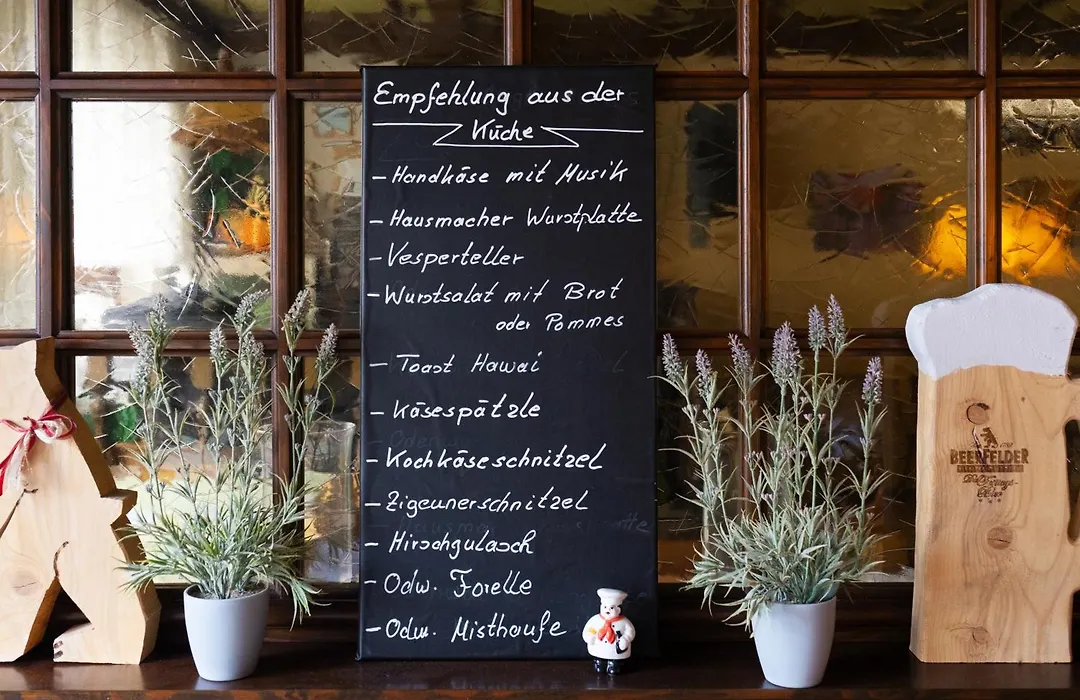 Empfehlung aus der
Küche
– Handkäse mit Musik
– Hausmacher Wurstplatte
– Vesperteller
– Wurstsalat mit Brot
oder Pommes
– Toast Hawai
– Käsespätzle
– Kochkäseschnitzel
– Zigeunerschnitzel
– Hirschgulasch
– Odw. Forelle
– Odw. Misthaufe
BEERFELDER